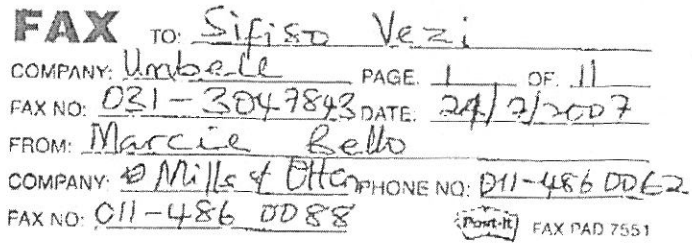 FAX TO: Sifiso Vezi
COMPANY: Umbele PAGE. 1 OF. 11
FAX NO: 031-3047843 DATE: 24/7/2007
FROM: Marcie Bello
COMPANY: Mills & Otten PHONE NO: 011-486 0062
FAX NO: 011-486 0088 Post-it FAX PAD 7551